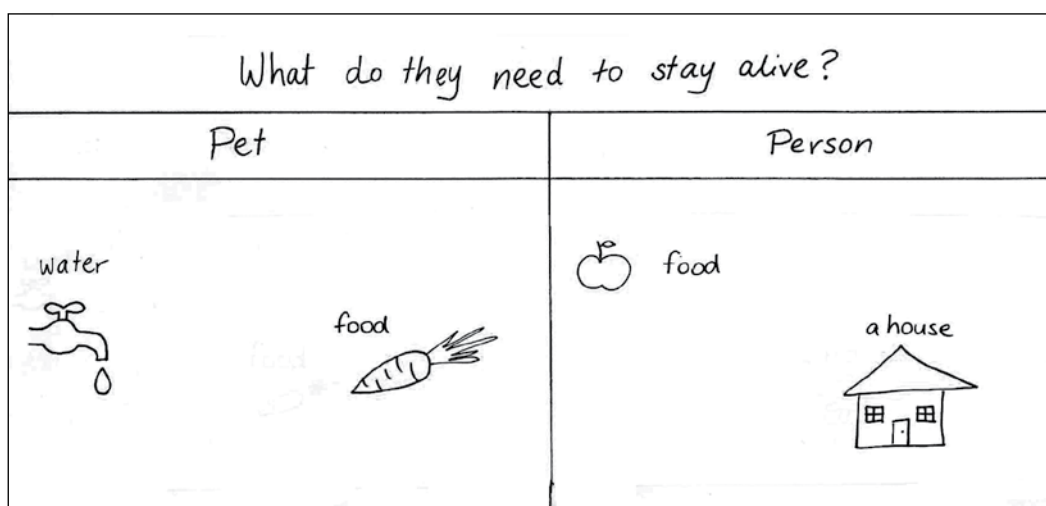 What do they need to stay alive?
Pet
Person
water
food
food
a house